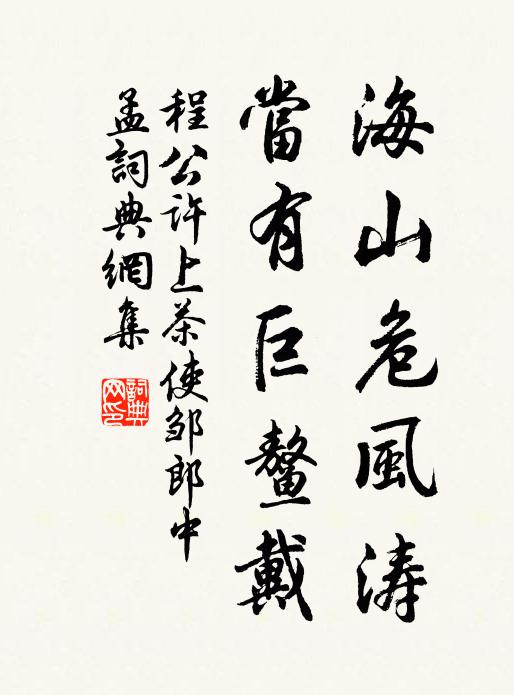 海山危風濤
當有巨鼇戴
程公許上茶使邹郎中
孟詞典網集
詞典
网印